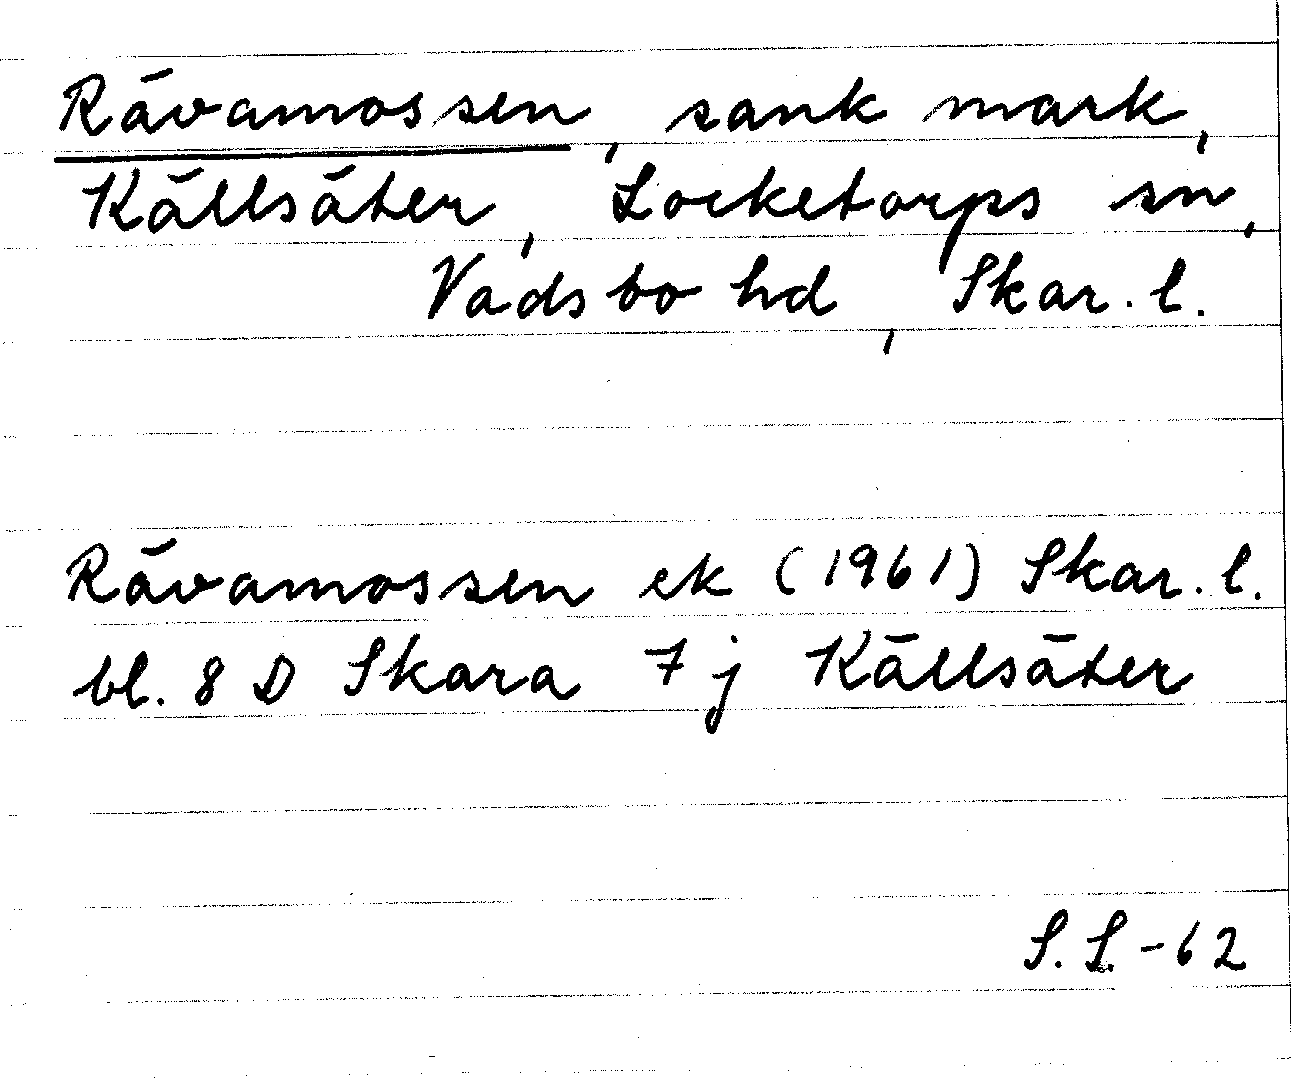 Rävamossen, sank mark,
Källsäter, Locketorps sn,
Vadsbo hd, Skar. l.
Rävamossen ek (1961) Skar. l.
bl. 8 D Skara 7 j Källsäter
S. S. -62